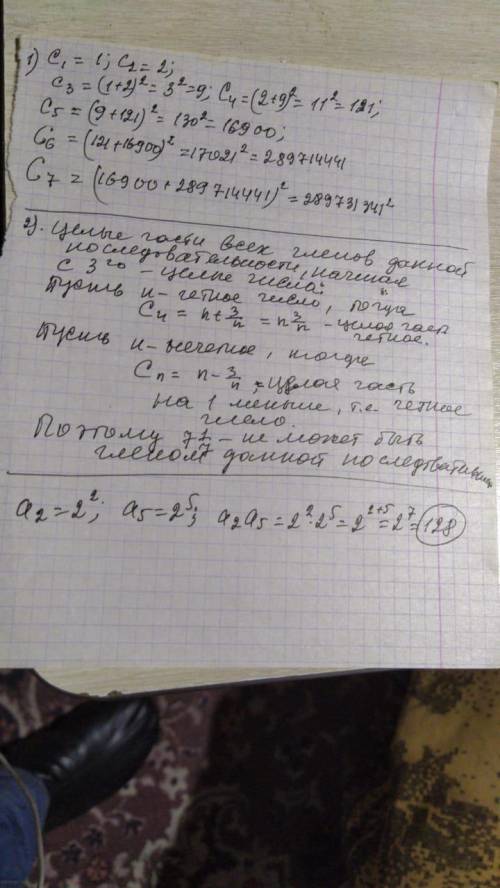 1) C₁ = 1; C₂ = 2;
C₃ = (1+2)² = 3² = 9; C₄ = (2+9)² = 11² = 121;
C₅ = (9+121)² = 130² = 16900;
C₆ = (121+16900)² = 17021² = 289714441
C₇ = (16900 + 289714441)² = 289731341²
2). Целые части всех членов данной
последовательности, начиная
с 3го – целые числа:
Пусть n - четное число, тогда
Cn = n + 3/n = n 3/n - целая часть
четное.
Пусть n - нечетное, тогда
Cn = n - 3/n, целая часть
на 1 меньше, т.е. четное
число.
Поэтому – не может быть
членом данной последовательн
a₂ = 2²; a₅ = 2⁵; a₂a₅ = 2²·2⁵ = 2²⁺⁵ = 2⁷ = 128